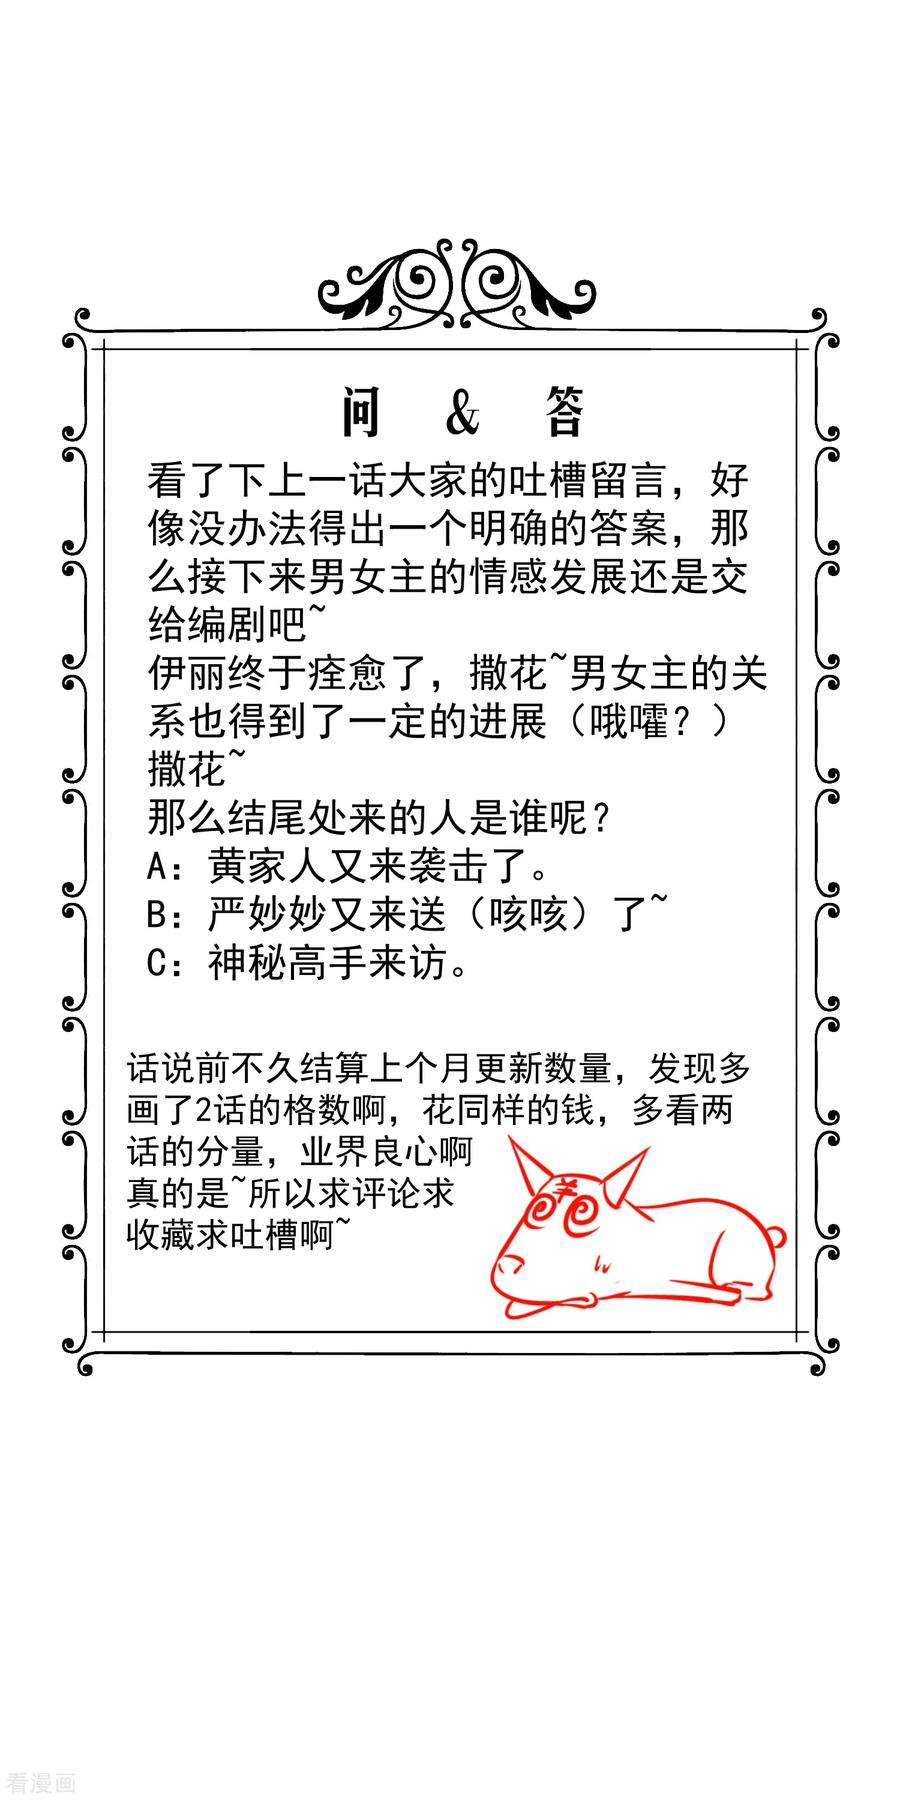 问 & 答
看了下上一话大家的吐槽留言，好
像没办法得出一个明确的答案，那
么接下来男女主的情感发展还是交
给编剧吧~
伊丽终于痊愈了，撒花~男女主的关
系也得到了一定的进展（哦嚯？）
撒花~
那么结尾处来的人是谁呢？
A：黄家人又来袭击了。
B：严妙妙又来送（咳咳）了~
C：神秘高手来访。
话说前不久结算上个月更新数量，发现多
画了2话的格数啊，花同样的钱，多看两
话的分量，业界良心啊
真的是~所以求评论求
收藏求吐槽啊~
看漫画